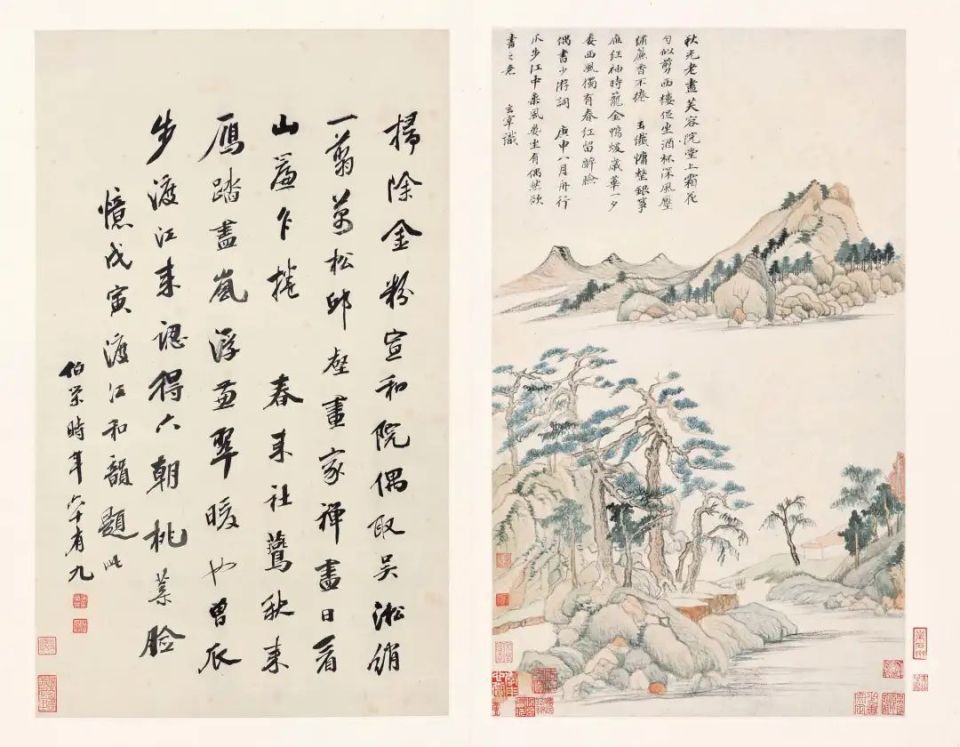 秋光老盡芙蓉院堂上霜花
勻似剪西樓促坐酒杯深風壓
繡簾香不捲 玉纖慵整銀箏
雁紅袖時籠金鴨煖歲華一夕
委西風獨有春紅留醉臉
偶書少游詞 庚申八月舟行
瓜步江中乘風晏坐有偶然欲
書之意 玄宰識
掃除金粉宣和院偶取吳淞綃
一翦萬松邱壑畫家禪盡日看
山簾乍捲 春來社鷰秋來
鴈踏盡嵐浮翠暖也曾瓜
步渡江來認得六朝桃葉臉
憶戊寅渡江和韻題此
伯榮時年六十有九